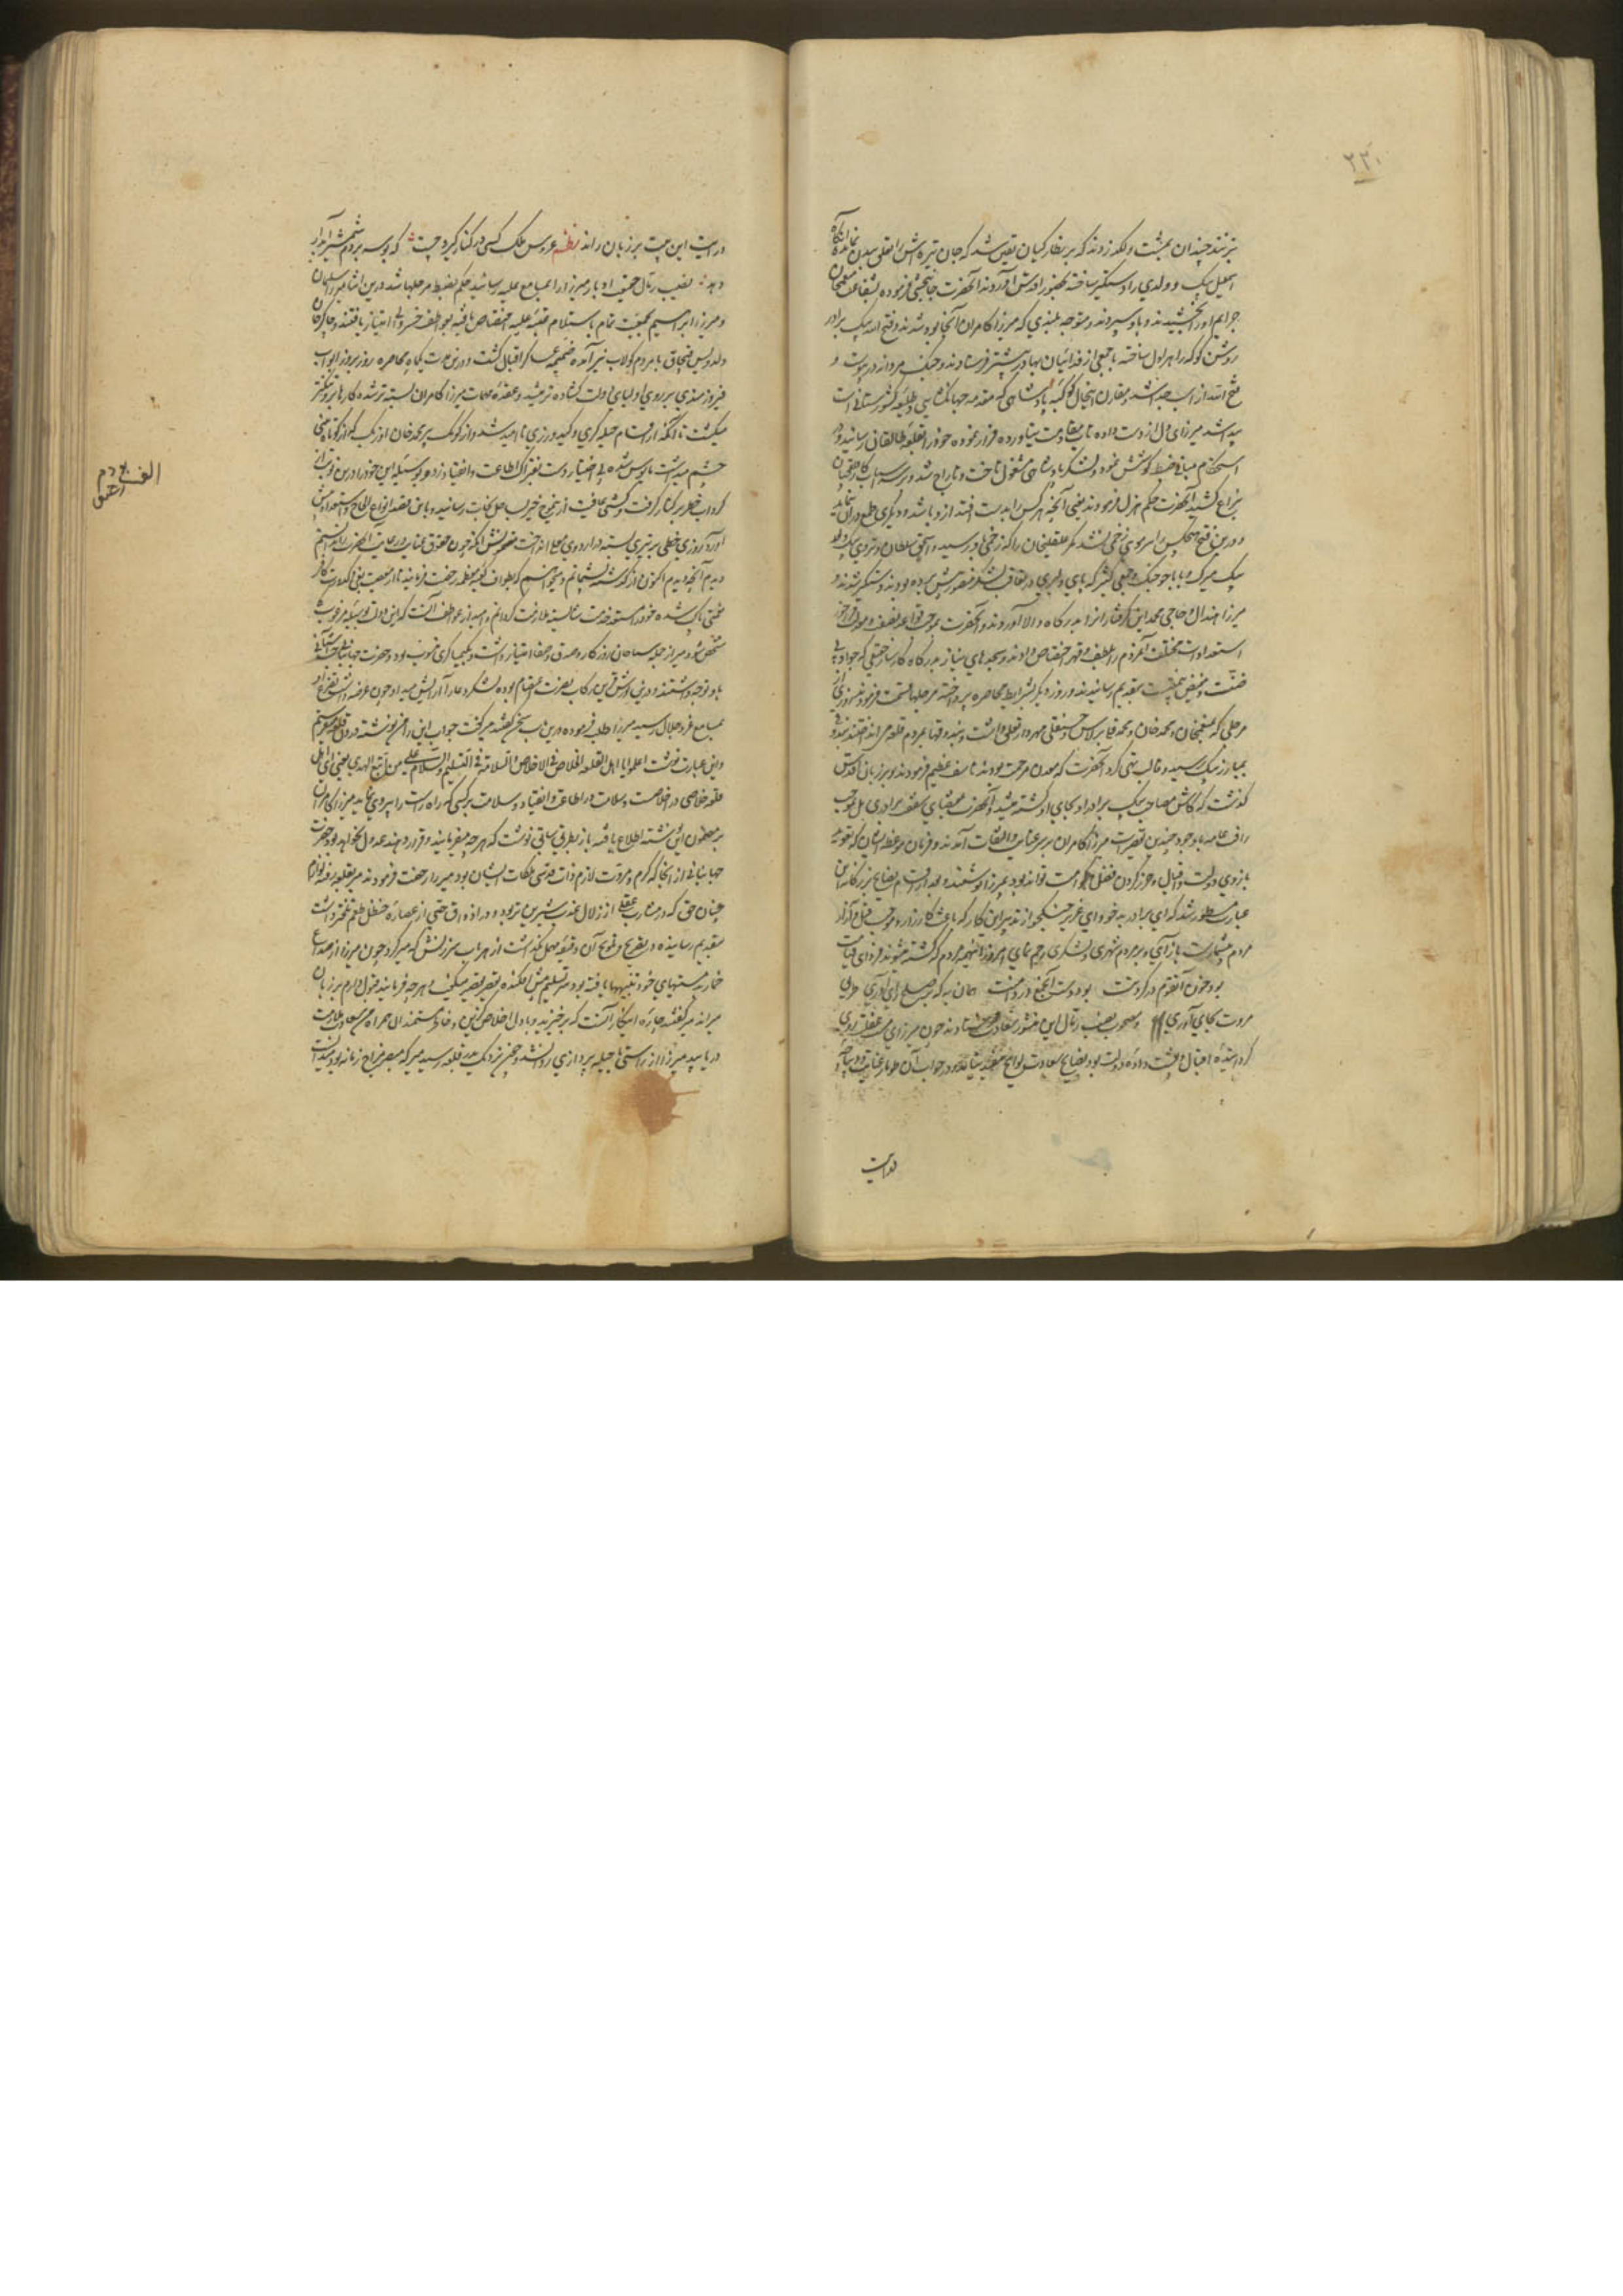 ۲۳۰
بزنند چندان بمشت و لکد زدند که بر نظارکیان یقین شد که جان تیره اش را تعلق ببدن نمانده آنگاه
اسمعیل بیک دولدی را دستگیر ساخته بحضور اقدس آوردند آنحضرت جان بخشی فرموده بشفاعت منعم خان
جرایم او را بخشیدند و باو سپردند و متوجه بلندی که میرزا کامران آنجا بود شدند و فتح الله بیک برادر
روشن کوکه را هراول ساخته با جمعی از فدائیان بهادر پیشتر فرستادند و جنک مردانه در پیوست و
فتح الله از اسپ جدا شد مقارن اینحال کوکبه پادشاهی که مقدمه جهانکشایی و طلیعه کشورستانی است
پیدا شد میرزا دل از دست داده تاب مقاومت نیاورده فرار نموده خود را بقلعه طالقان رسانید و در
استحکام مبانی ضبط کوشش نمود و لشکر پادشاهی مشغول تاخت و تاراج شد و بر سر اسباب کار
بنزاع کشید آنحضرت حکم فرمودند یعنی آنچه هر کس را بدست افتد از و باشد و دیگری طمع در آن ننماید
و درین فتح هیچکس را سر موی زخمی نشد مکر علیقلیخان را که زخمی باو رسید و اسحق سلطان و تردی بیک ولد
بیک میرک و بابا جوجک و جمعی کثیر که پای دلیری در تعاقب لشکر منصور پیش برده بودند دستگیر شدند و
میرزا هندال و حاجی محمد این گرفتاران را بدرگاه والا آوردند و آنحضرت بموجب قواعد نصفت و معدلت در خور
استعداد است مختلف آنمردم را بلطف و قهر اختصاص دادند و سجده های نیاز بدرگاه کارساز حقیقی که جواد بی
ضنت و مفیض بی منت بتقدیم رسانیدند و روز دیگر بشرایط محاصره پرداخته مرچلها قسمت فرمودند روزی از
مرچلی که منعم خان و محمد خان و محمد قلی برلاس حسینقلی مهردار تعلق داشت بندوقها بمردم قلعه می انداختند بندوقی
بمبارز بیک رسید و قالب تهی کرد آنحضرت که معدن مرحمت بودند تاسف عظیم فرمودند و بر زبان اقدس
گذشت که کاش مصاحب بیک برادر او بجای او کشته میشد و آنحضرت بمقتضای شفقت برادری بل بموجب
رافت عامه باوجود چندین تقصیرات میرزا کامران بر سر عنایت و التفات آمدند و فرمان موعظه نشان که تعویذ
بازوی دولت و اقبال و حرز گردن فضل و حکمت تواند بود بمیرزا نوشتند و بعد از اقسام نصایح بزرگانه این
عبارت مسطور شد که ای برادر بدخو و ای عزیز جنگجو از تدبیر این کار که باعث کارزار و موجب قتل و آزار
مردم بیشمار است باز آی و بر مردم شهری و لشکری رحم نمای امروز اینهمه مردم که کشته میشوند فردای قیامت
بود خون آن قوم در گردنت بود دست آن جمع در دامنت همان به که بر صلح رای آوری طریق
مروت بجای آوری و مصحوب نصیب رمال این منشور سعادت فرستادند چون میرزا مست غفلت روی
گردانیده اقبال و پشت داده دولت بود نصایح سعادت لوایح مفید نیفتاد و در جواب آن طومار عنایت و دیباچه
هدایت
هدایت این بیت بر زبان راند نظم عروس ملک کسی در کنار گیرد چست که بوسه بر دم شمشیر آبدار
دهد نصیب رمال حقیقت ادبار میرزا را بمسامع علیه رسانید حکم بضبط مرچلها شد درین اثنا میرزا سلیمان
و میرزا ابراهیم بجمعیت تمام باستلام عتبه علیه اختصاص یافته بعواطف خسروانی امتیاز یافتند و چاکر خان
ولد ویس قبچاق با مردم کولاب نیز آمده ضمیمه عساکر اقبال گشت و درین مدت یکماه محاصره روز بروز ابواب
فیروزمندی بر روی اولیای دولت گشاده تر میشد و عقده مهمات میرزا کامران بسته تر شده کار بر او تنگتر
میگشت تا آنکه از اقسام حیله گری و کید ورزی ناامید شد و از کومک پیر محمد خان اوزبک که از کوتاه بینی
چشم میداشت مایوس شده بی اختیار دست بفتراک اطاعت و انقیاد زد و بوسیله این خود را درین نوبت از
گرداب خطر بر کنار گرفت و کشتی عافیت از تموج خیز بساحل نجات رسانید و باین قصد انواع الحاح و استعداد پیش
آورد روزی خطی بر تیری بسته در اردوی معلی انداخت مضمونش آنکه چون حقوق عنایت و رعایت آنحضرت را ندانستم
دیدم آنچه دیدم اکنون از گذشته پشیمانم و میخواهم که بطواف کعبه معظمه رخصت فرمایند تا از معصیت بغی و کدورت کافر
نعمتی پاک شده خود را مستعد خدمت شایسته ملازمت گردانم و امید از عواطف آنست که این دولت بوسیله میر عرب
مشخص شود میر از جمله سیاحان روزگار و بصدق و صفا امتیاز داشت و بکیمیاگری منسوب بود و حضرت جهانبانی جنت آشیانی
باو توجه داشتند و درین یورش قرین رکاب نصرت اعتصام بوده لشکر دعا را آرایش میداد چون عرضه داشت تضرع او
بمسامع عز و جلال رسید میر را طلب فرموده درین باب سخن گفتند میر گفت جواب این را من نوشته درون قلعه میفرستم
و این عبارت نوشت اعلموا یا اهل القلعه الخلاص فی الاخلاص و السلامة فی التسلیم و السلام علی من اتبع الهدی یعنی ای اهل
قلعه خلاصی در اخلاص است و سلامت در اطاعت و انقیاد و سلامت بر کسی که راه راست را پیروی نماید میرزا کامران
بر مضمون این نوشته اطلاع یافته باز بطریق سابق نوشت که هر چه میر فرمایند و قرار دهند عدول نخواهد بود حضرت
جهانبانی از آنجا که کرم و مروت لازم ذات قدسی ملکات ایشان بود میر را رخصت فرمودند میر بقلعه رفته لوازم
چنان حق که در مشارب عقل از زلال عذب شیرین تر بود و در اذواق حس از عصاره حنظل طعم تلختر داشت
بتقدیم رسانیده در تقریع و توبیخ آن دقیقه مهمل نگذاشت از هر باب سرزنش که میر کرد چون میرزا از صداع
خمار بدمستیهای خود تنبیهها یافته بود سر تسلیم پیش افکنده تقصیر تقصیر میگفت و هر چه فرمایند قبول دارم بر زبان
میراند میر گفتند چاره اینکار آنست که برخیزید و با دل اخلاص گزین و خاطر مستمندان همراه من سعادت ملازمت
دریابید میرزا از راستی یا حیله پردازی روانشد و چون نزدیک بدر قلعه رسید میر که مبصر مزاج زمانه بود میدانست